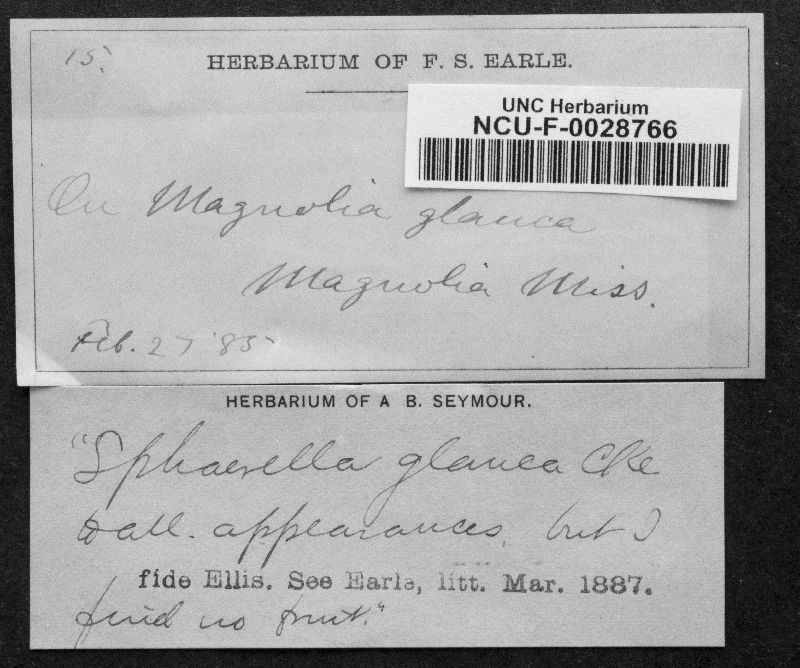 15.
HERBARIUM OF F. S. EARLE.
UNC Herbarium
NCU-F-0028766
On Magnolia glauca
Magnolia Miss.
Feb. 27 '85
HERBARIUM OF A B. SEYMOUR.
"Sphaerella glauca Cke
to all. appearances, but I
fide Ellis. See Earle, litt. Mar. 1887.
find no fruit."